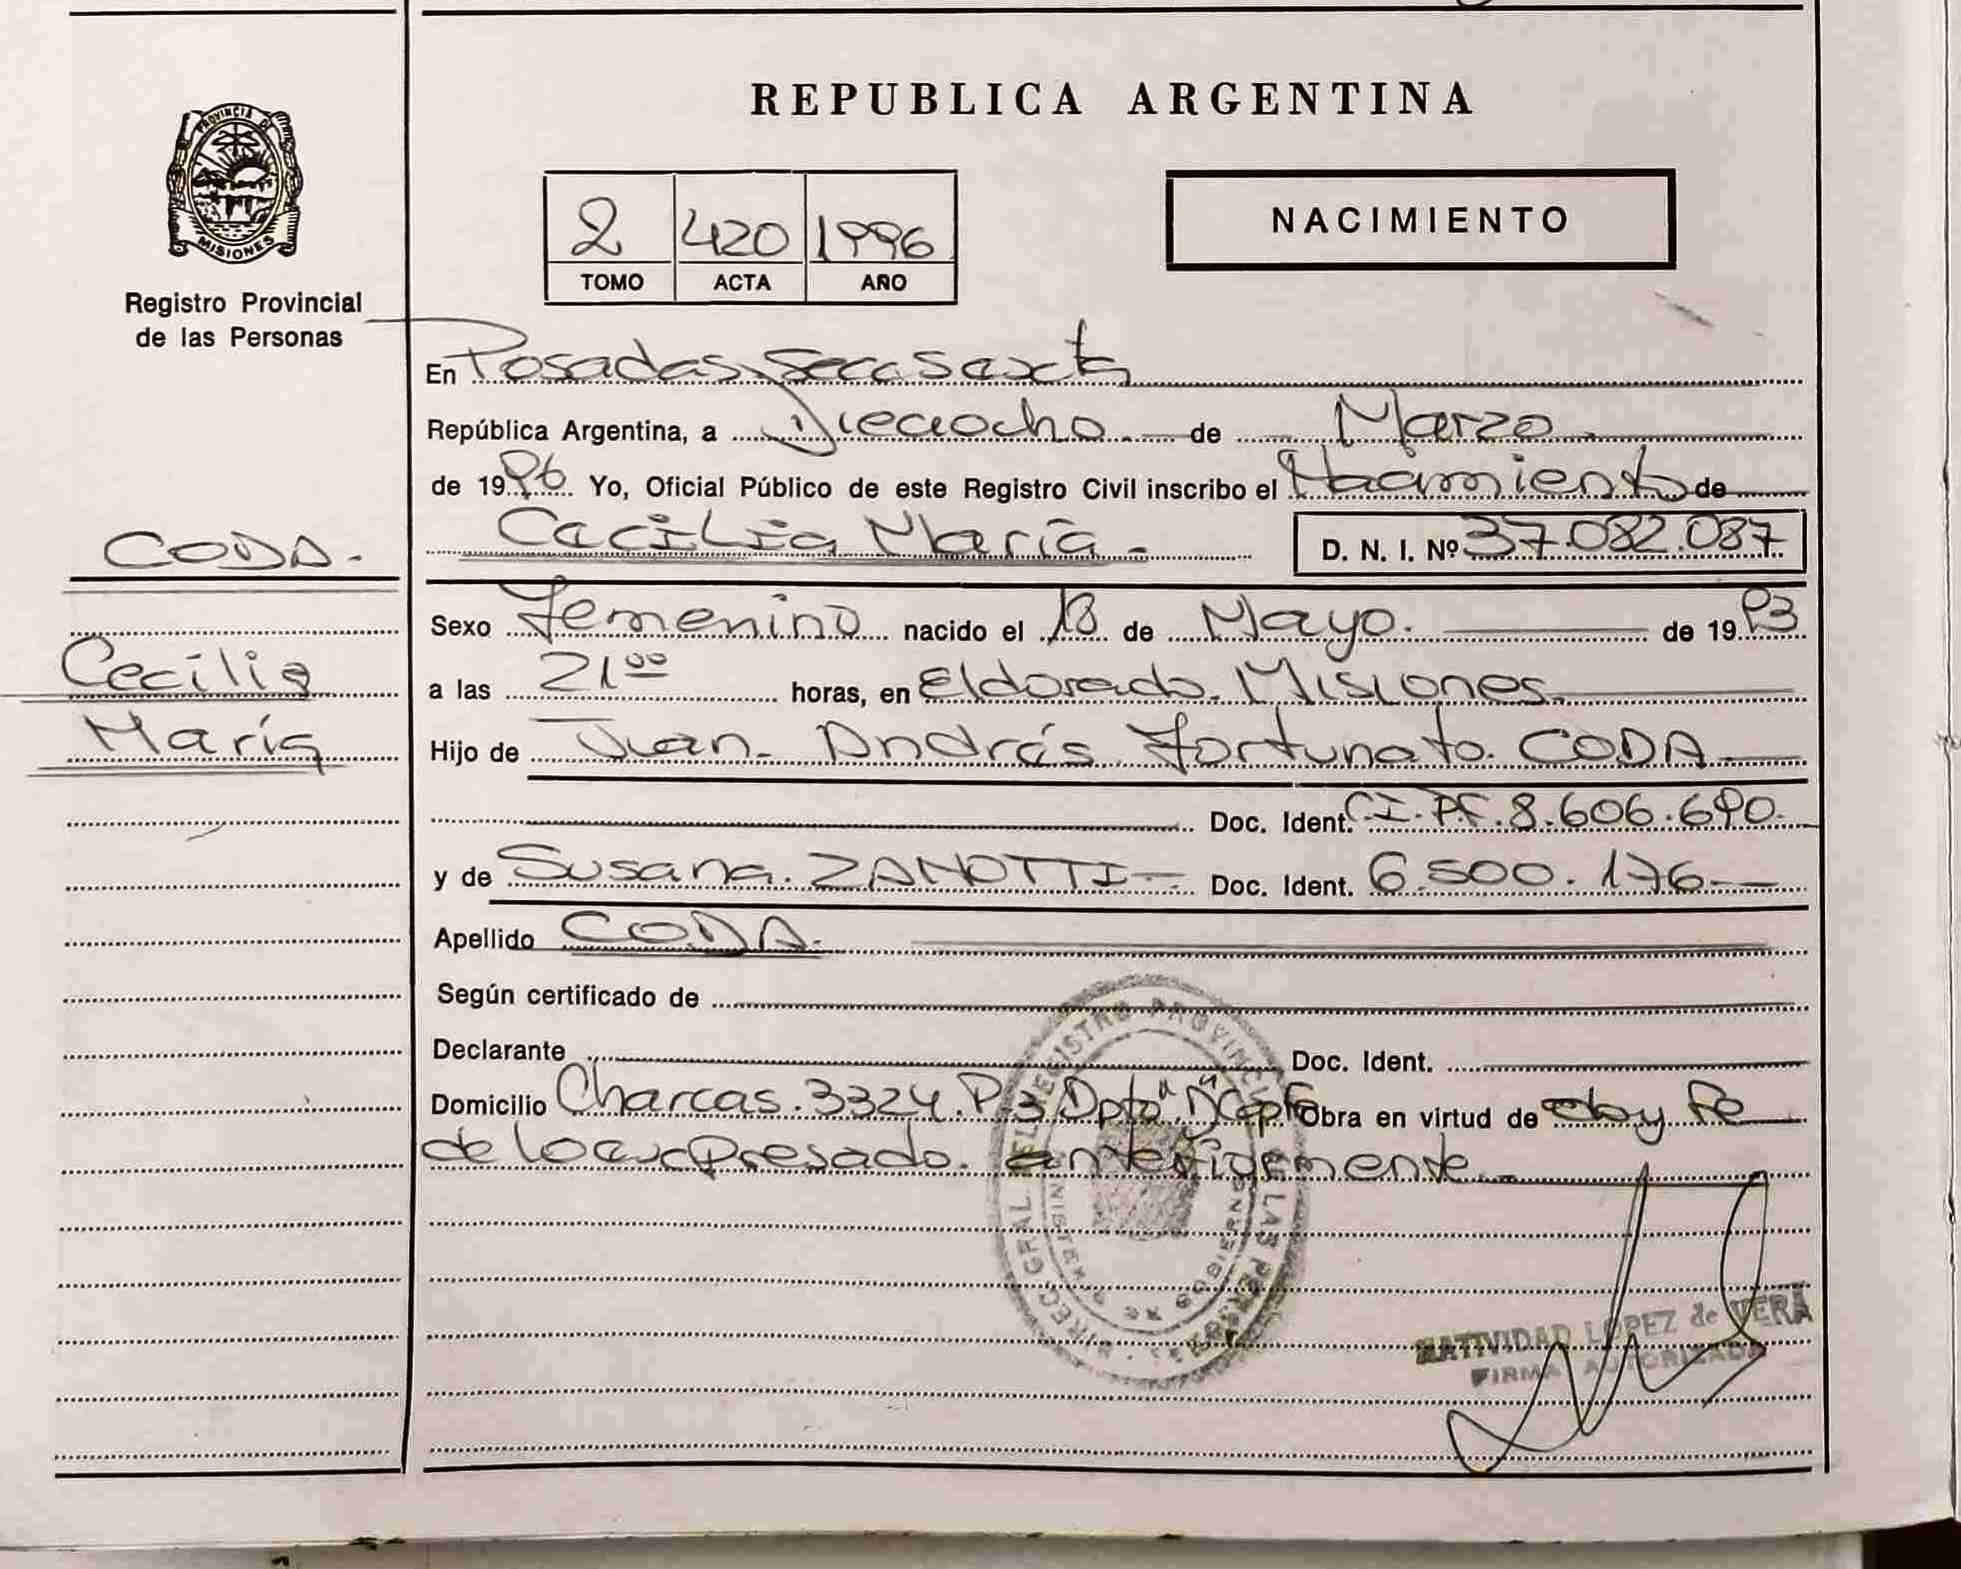 REPUBLICA ARGENTINA
PROVINCIA DE
MISIONES
Registro Provincial
de las Personas
2 420 1996
TOMO ACTA AÑO
NACIMIENTO
En Posadas. Secc Sexta
República Argentina, a Dieciocho de Marzo.
de 1996 Yo, Oficial Público de este Registro Civil inscribo el Nacimiento de
Cecilia María. D. N. I. Nº 37.082.087
CODA.
Cecilia
María
Sexo Femenino nacido el 18 de Mayo. de 1993
a las 21 00 horas, en Eldorado. Misiones.
Hijo de Juan. Andrés Fortunato. CODA
Doc. Ident. C.I. P.F. 8.606.690.
y de Susana. ZANOTTI Doc. Ident. 6.500.176
Apellido CODA.
Según certificado de
Declarante Doc. Ident.
Domicilio Charcas. 3324. P. 3 Dpto "D" Cap. Obra en virtud de doy Fe
de lo expresado. anteriormente
NATIVIDAD LOPEZ de VERA
FIRMA AUTORIZADA